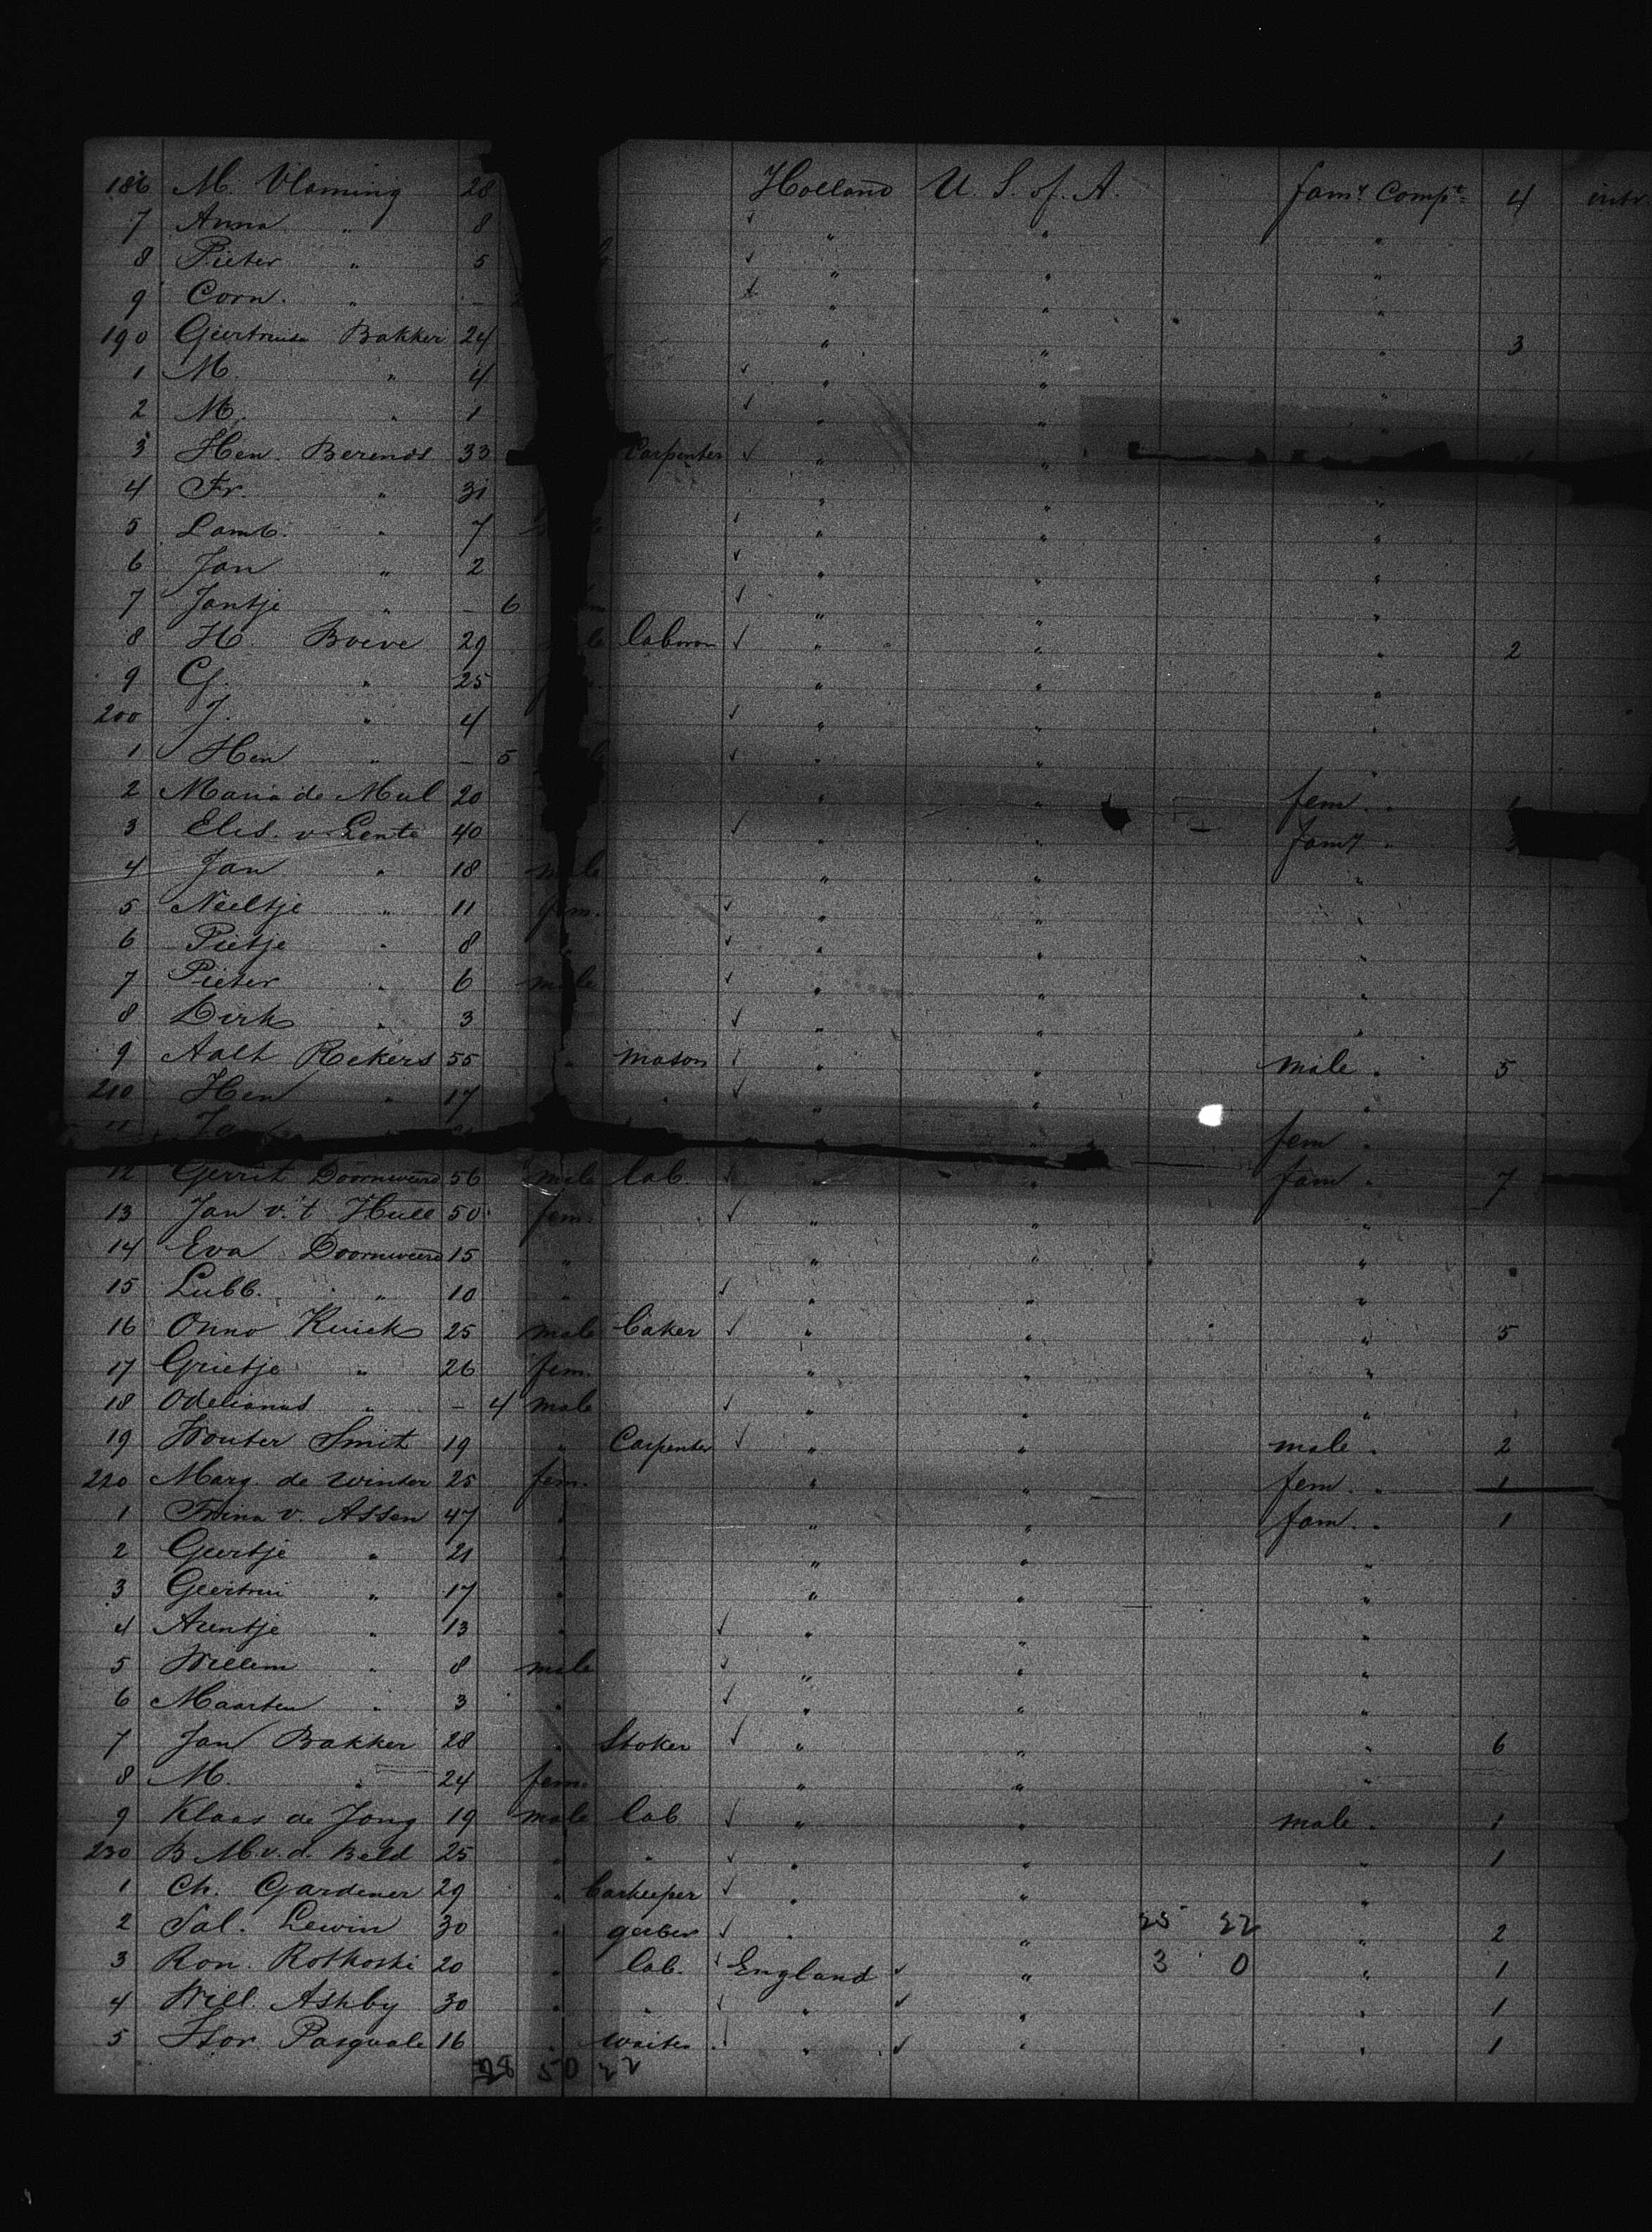 186 M. Vlaming 28 Holland U. S. of. A. famy Compt 4
7 Anna " 8 " " "
8 Pieter " 5 " " "
9 Corn. " - " " "
190 Bakker 24 " " " 3
1 M. " 4 " " "
2 M. " 1 " " "
3 Hen. Berends 33 Carpenter "
4 Fr. " 31 " " "
5 Lamb. " 7 " " "
6 Jan " 2 " " "
7 Jantje " - 6 " " "
8 H. Boeve 29 " " " 2
9 G. " 25 " " "
200 J. " 4 " " "
1 Hen " - 5 " " "
2 Maria de Mul 20 " " fem. "
3 Elis. v Lente 40 " " famy "
4 Jan " 18 male " " "
5 Neeltje " 11 fem. " " "
6 Pietje " 8 " " " "
7 Pieter " 6 male " " "
8 Dirk " 3 " " "
9 Aalt Rekers 55 " mason " male " 5
210 Hen " 17 " " " "
11 " fem "
12 Gerrit Doornweerd 56 male lab. " " fam " 7
13 Jan v. 't Hull 50 fem. " " "
14 Eva Doornweerd 15 " " " "
15 Lubb. " 10 " " " "
16 Onno Kuick 25 male baker " " " 5
17 Grietje " 26 fem. " " "
18 Odelianus " - 4 male " " "
19 Wouter Smit 19 " Carpenter " " male " 2
220 Marg. de Winter 25 fem. " " fem. " 1
1 v. Assen 47 " " " fam. " 1
2 Geertje " 21 " " " "
3 Geertrui " 17 " " " "
4 Aentje " 13 " " " "
5 Willem " 8 male " " "
6 Maarten " 3 " " " "
7 Jan Bakker 28 " Stoker " " " 6
8 M. " 24 fem. " " "
9 Klaas de Jong 19 male lab " " male " 1
230 B M. v. d. Beld 25 " " " " " 1
1 Ch. Gardener 29 " barkeeper " " "
2 Sal. Lewin 30 " " " 25 22 " 2
3 Ron. Rothoski 20 " lab. England " 3 0 " 1
4 Will. Ashby 30 " " " " " 1
5 Isor. Pasquale 16 " waiter " " " 1
28 50 22